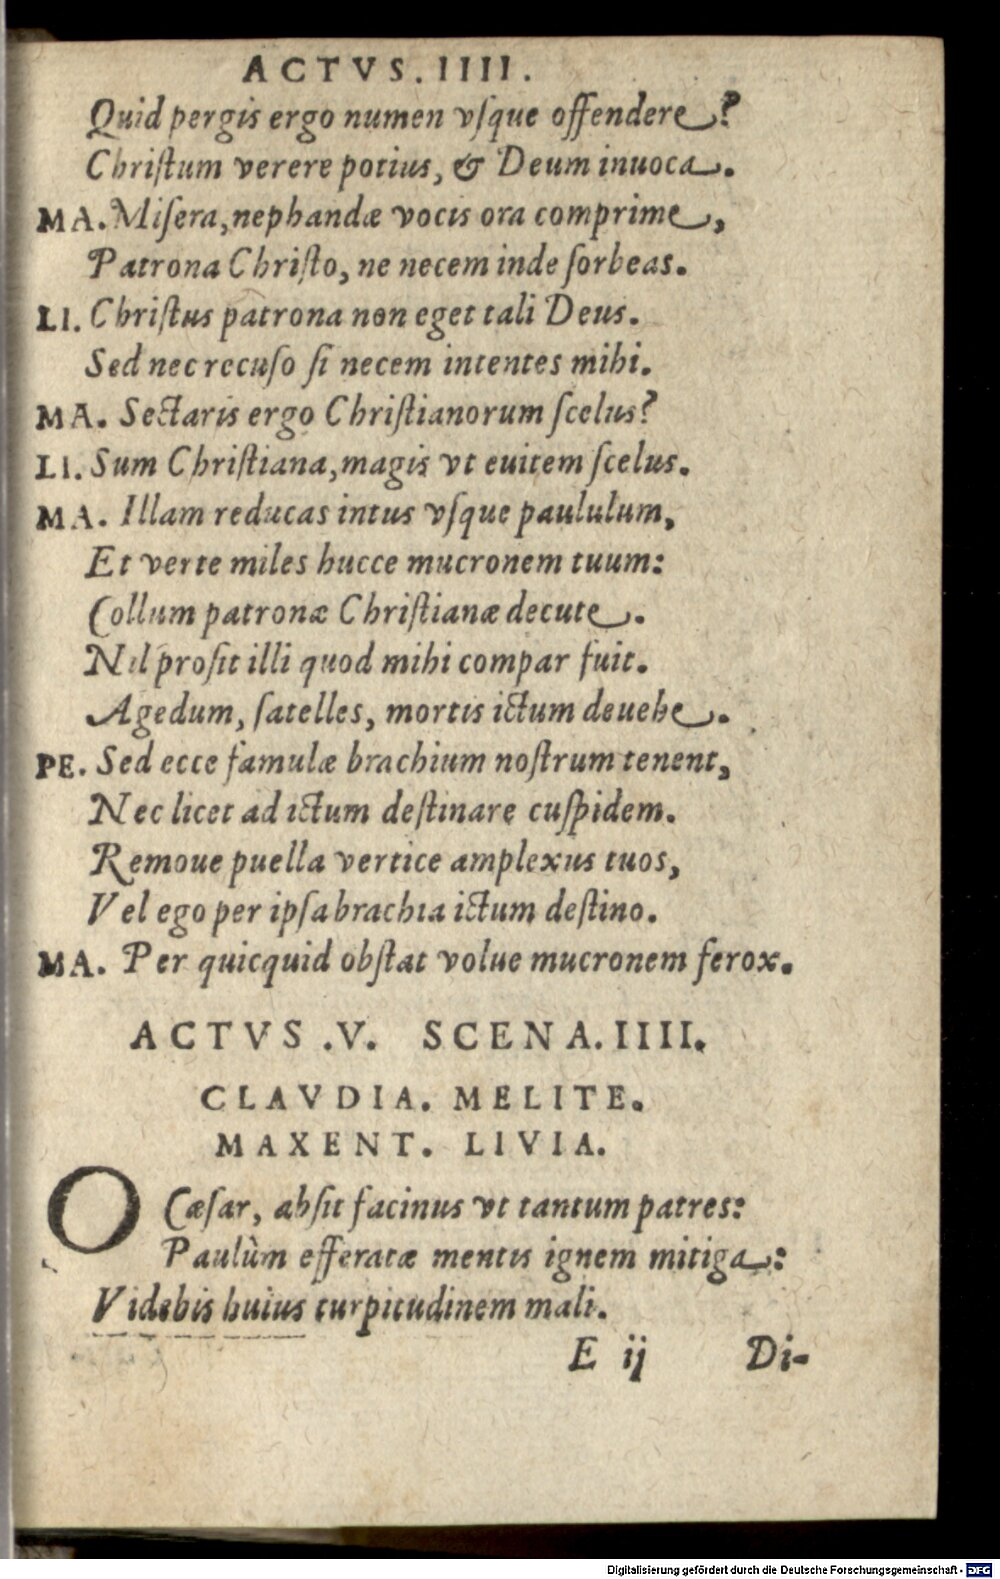 ACTVS. IIII.
Quid pergis ergo numen vſque offendere?
Chriſtum verere potius, & Deum inuoca.
MA. Miſera, nephandæ vocis ora comprime,
Patrona Chriſto, ne necem inde ſorbeas.
LI. Chriſtus patrona non eget tali Deus.
Sed nec recuſo ſi necem intentes mihi.
MA. Sectaris ergo Chriſtianorum ſcelus?
LI. Sum Chriſtiana, magis vt euitem ſcelus.
MA. Illam reducas intus vſque paululum,
Et verte miles hucce mucronem tuum:
Collum patronæ Chriſtianæ decute.
Nil proſit illi quod mihi compar fuit.
Agedum, ſatelles, mortis ictum deuehe.
PE. Sed ecce famulæ brachium noſtrum tenent,
Nec licet ad ictum deſtinare cuſpidem.
Remoue puella vertice amplexus tuos,
Vel ego per ipſa brachia ictum deſtino.
MA. Per quicquid obſtat volue mucronem ferox.
ACTVS .V. SCENA. IIII.
CLAVDIA. MELITE.
MAXENT. LIVIA.
O Cæſar, abſit facinus vt tantum patres:
Paulùm efferatæ mentis ignem mitiga:
Videbis huius turpitudinem mali.
E ij Di-
Digitalisierung gefördert durch die Deutsche Forschungsgemeinschaft - DFG